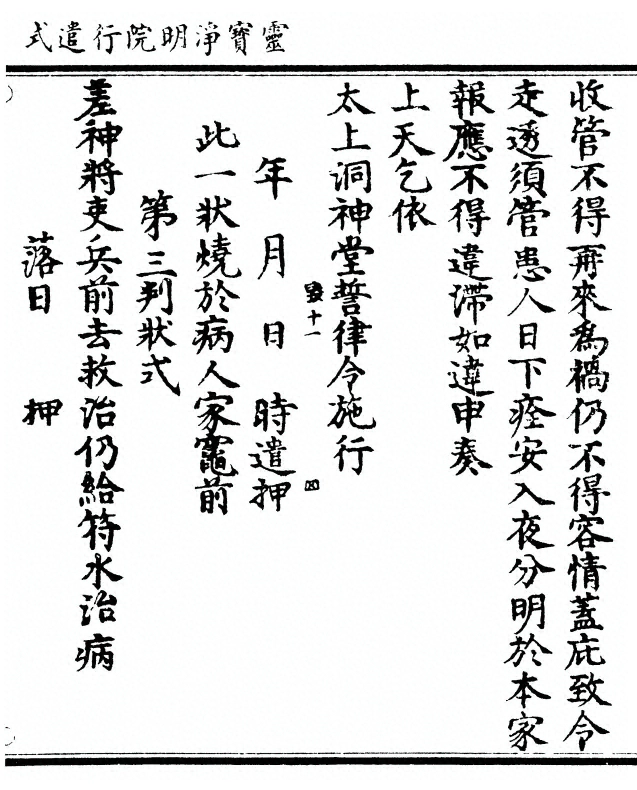 靈寶淨明院行遣式
收管不得再來為禍仍不得容情蓋庇致令
走透須管患人日下痊安入夜分明於本家
報應不得違滯如違申奏
上天乞依
太上洞神堂誓律令施行
發十一 四
年月日時遣押
此一狀燒於病人家竈前
第三判狀式
差神將吏兵前去救治仍給符水治病
落日押